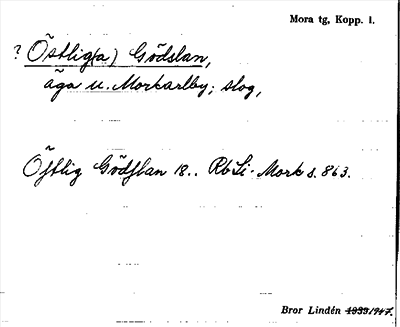 Mora tg, Kopp. l.
? Östlig(a) Gödslan,
äga u. Morkarlby; slog,
Öſtlig Gödſlan 18.. Rb Li. Mork s. 863.
Bror Lindén 1939/1947.